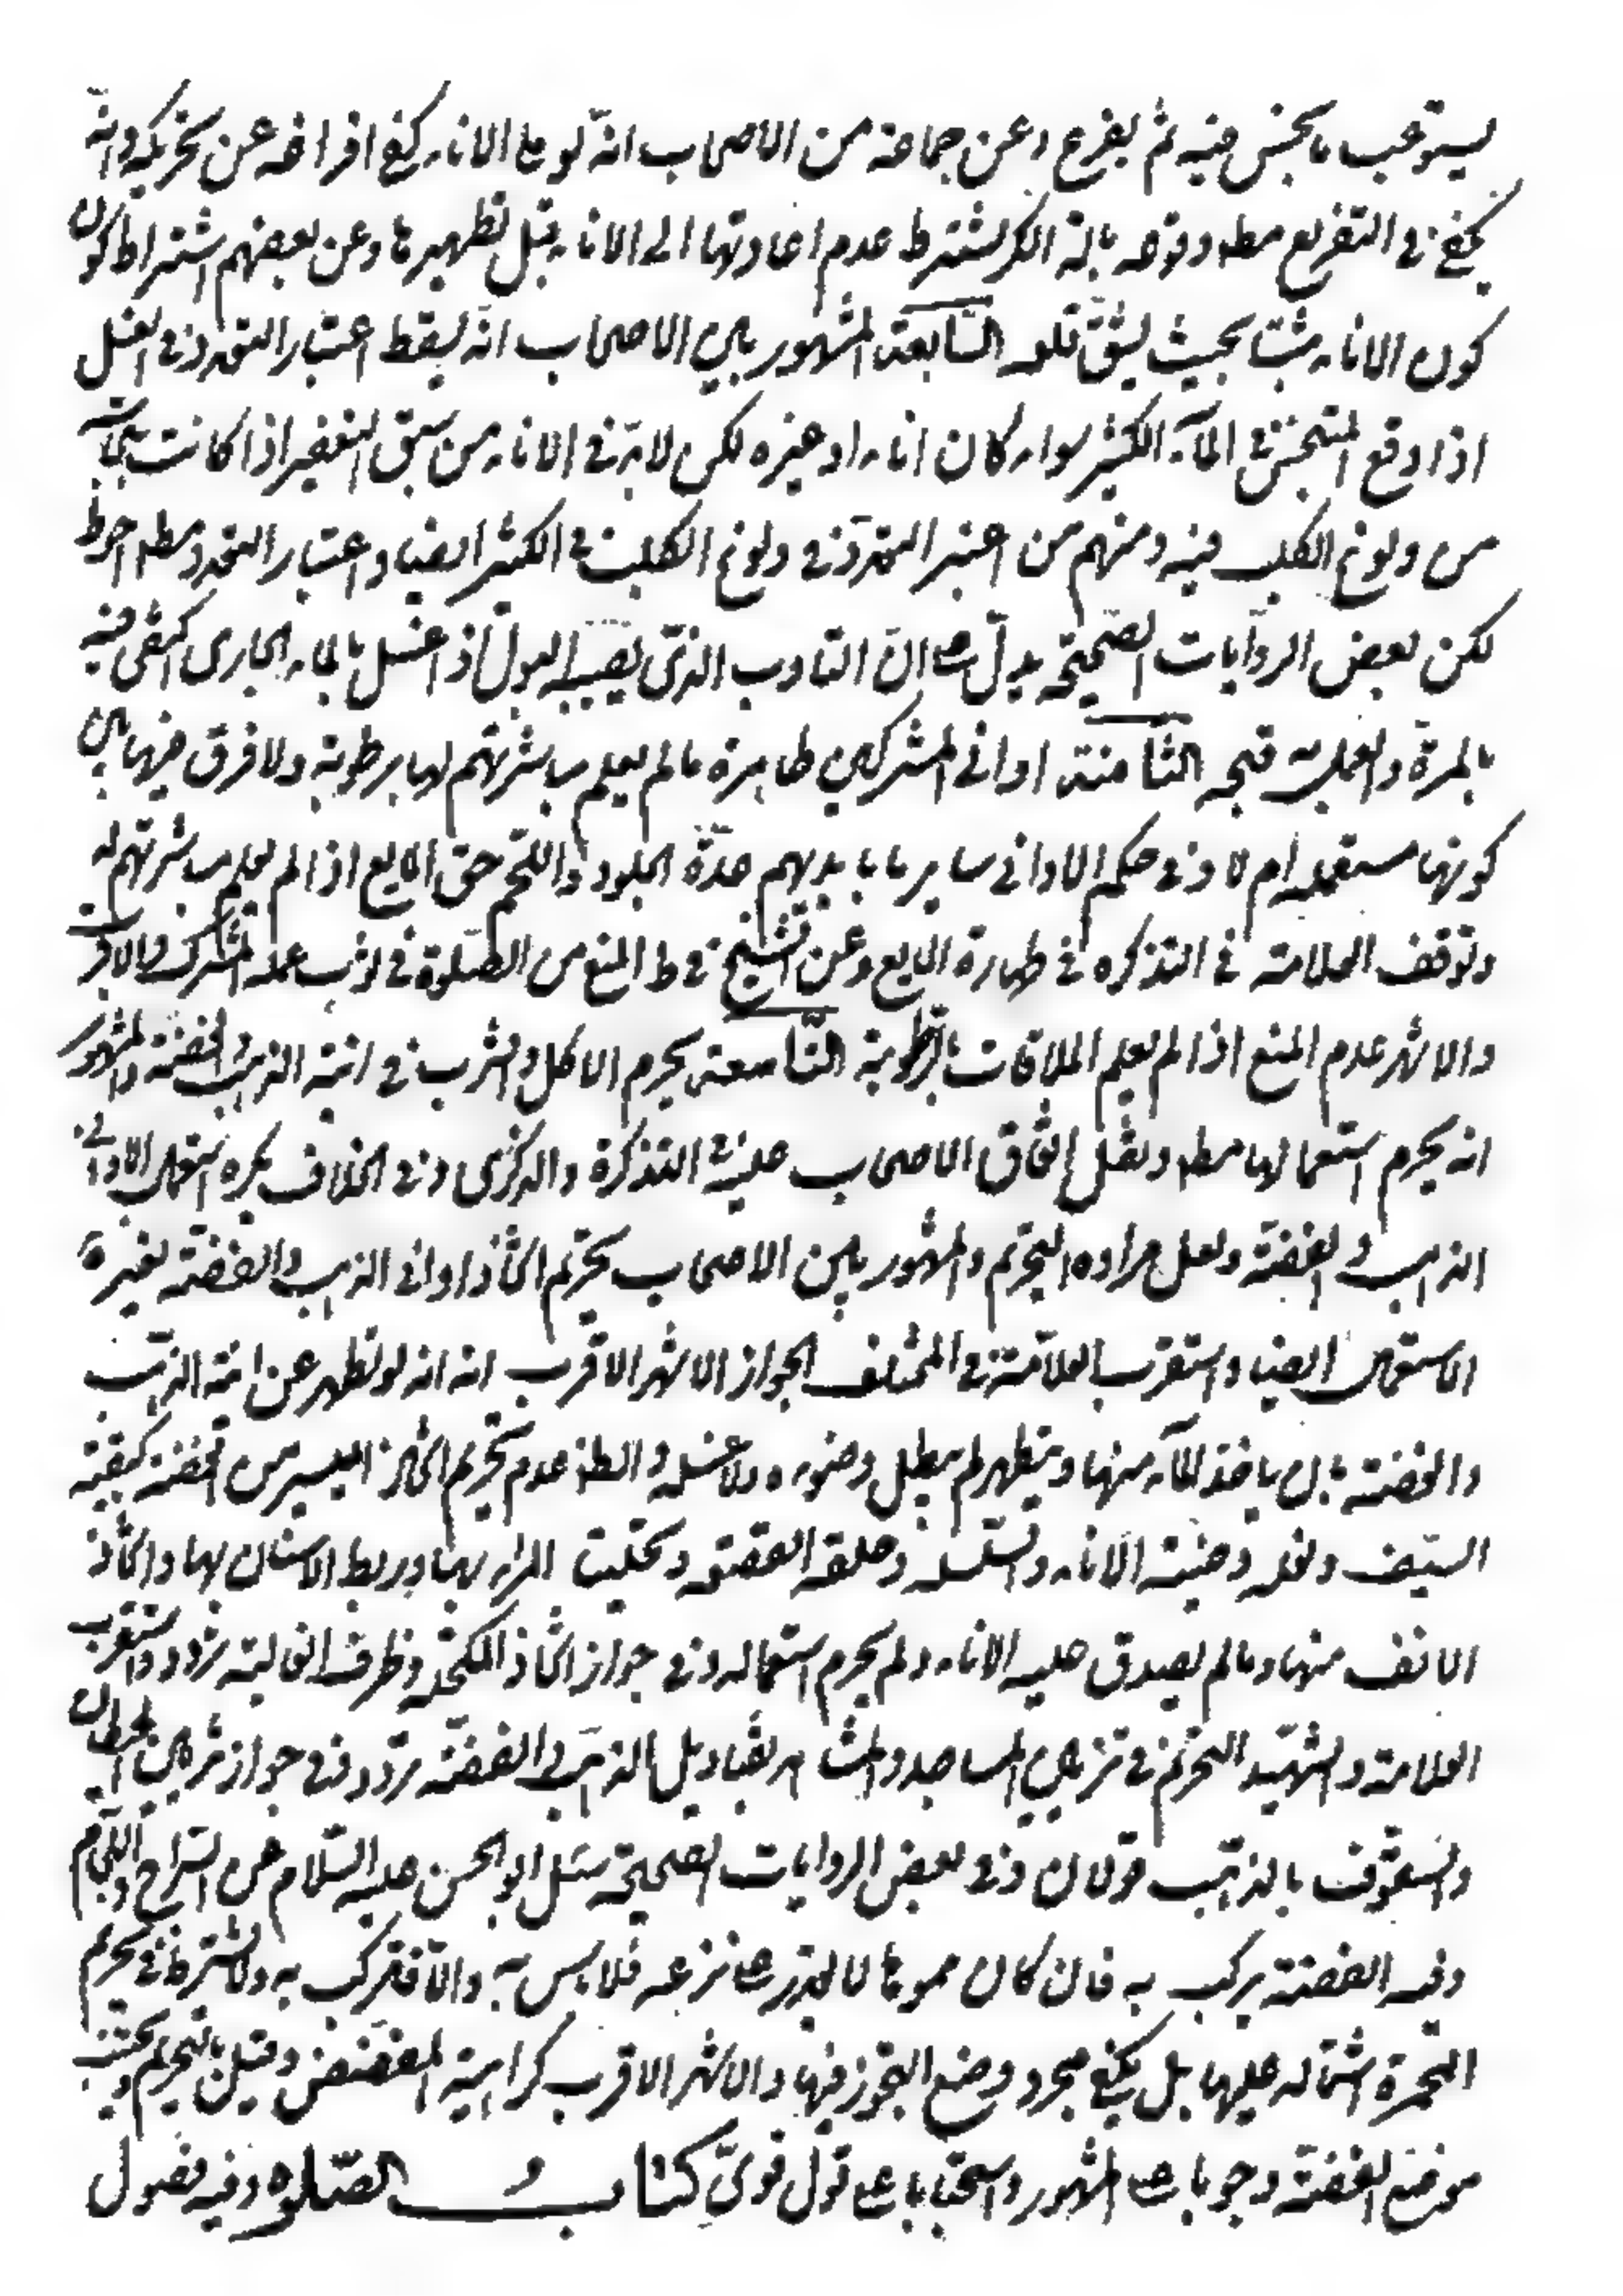 يستوعب ما نجس منه ثم يفرغ وعن جماعة من الاصحاب انه لو ملا الاناء كفى افراغه عن تحريكه وانه
يكفى فى التفريغ مط وقوعه بالة لكن يشترط عدم اعادتها الى الاناء قبل تطهيرها وعن بعضهم اشتراط كون
كون الاناء مثبتا بحيث يشق قلعه السّابعة المشهور بين الاصحاب انه يسقط اعتبار التعدد فى الغسل
اذا وقع المتنجس فى المآء الكثير سواء كان اناء او غيره لكن لا بدّ فى الاناء من سبق التعفير اذا كانت نجاسته
من ولوغ الكلب فيه ومنهم من اعتبر التعدّد فى ولوغ الكلب فى الكثير ايضا واعتبار التعدد مط احوط
لكن بعض الروايات الصّحيحة يدلّ على انّ الثوب الذى يصيبه البول اذ اغسل بالماء الجارى اكتفى فيه
بالمرة والعمل به متجه الثّامنة اوانى المشركين طاهرة ما لم يعلم مباشرتهم لها برطوبة ولا فرق فيها بين
كونها مستعملة ام لا وفى حكم الاوانى ساير ما بايديهم عدا الجلود واللّحم حتى المايع اذا لم يعلم مباشرتهم له
وتوقف العلامة فى التذكره فى طهارة المايع وعن الشّيخ فى ط المنع من الصّلوة فى ثوب عمله المشرك والاقرب
والاشهر عدم المنع اذا لم يعلم الملاقات بالرّطوبة التّاسعة يحرم الاكل والشرب فى انية الذهب والفضّة والمشهور
انه يحرم استعمالها مط ونقل اتفاق الاصحاب عليه فى التذكرة والذكرى وفى الخلاف يكره استعمال اوانى
الذهب والفضّة ولعل مراده التحريم والمشهور بين الاصحاب تحريم اتخاذ اوانى الذهب والفضّة لغير
الاستعمال ايضا واستقرب العلّامة فى المختلف الجواز الاشهر الاقرب انه لو تطهر عن انية الذهب
والفضة بان ياخذ المآء منها ويتطهر لم يبطل وضوءه ولا غسله والظ عدم تحريم اتخاذ اليسير من الفضّة كقبيعة
السيف ونعله وضبّة الاناء والسّلسلة وحلقة القصعة وتحلية المراة بها وربط الاسنان بها واتخاذ
الانف منها وما لم يصدق عليه الاناء ولم يحرم استعماله وفى جواز اتخاذ المكحلة وظرف الغالية تردد واستقرب
العلامة والشّهيد التحريم فى تزيين المساجد والمشاهد بقناديل الذهب والفضّة تردّد وفى جواز تزيين الحيطان
والسقوف بالذهب قولان وفى بعض الروايات الصحيحة سئل ابو الحسن عليه السّلام عن السّرج واللّجام
وفيه الفضّة يركب به فان كان مموّها لا يقدر على نزعه فلا باس به والّا فلا تركب به ولا يشترط فى تحريم
المجمرة اشتماله عليها بل يكفى مجرد وضع البخور فيها والاشهر الاقرب كراهية المفضّض وقيل بالتحريم ويجتنب
موضع الفضّة وجوبا على المشهور واستحبابا على قول قوىّ كتاب الصّلوه وفيه فصول